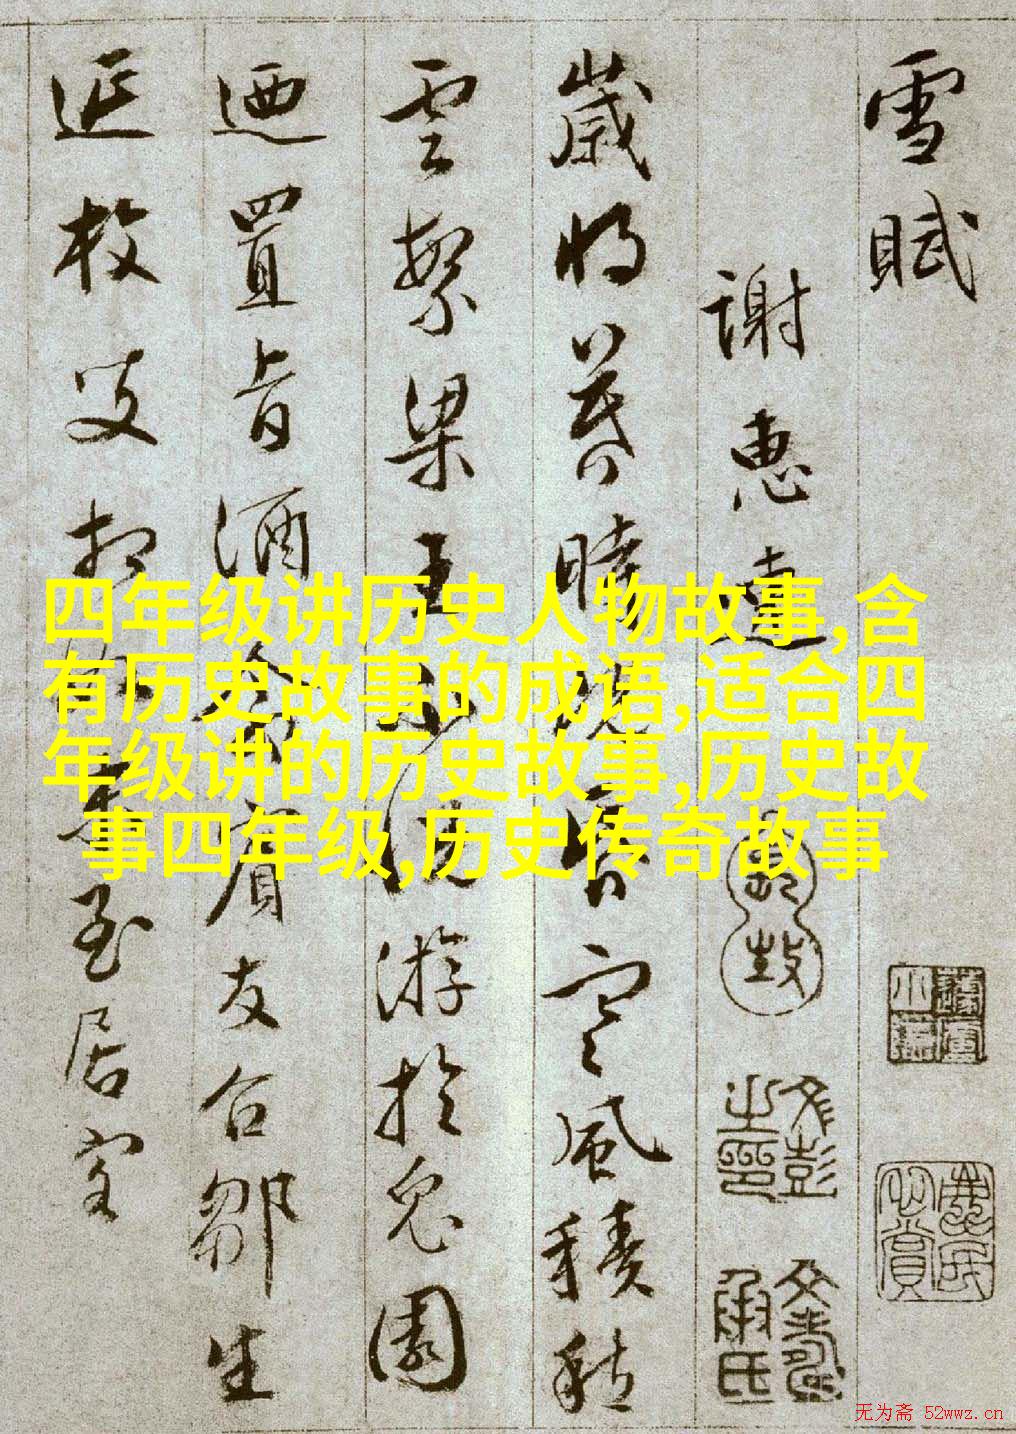 雪賦
謝惠連
歲将暮時既昏寒風積
雲繁梁王不悦游於兔園
迺置旨酒命賓友召鄒生
延枚叟相如末至居客
四年级讲历史人物故事,含
有历史故事的成语,适合四
年级讲的历史故事,历史故
事四年级,历史传奇故事
文彭之印
文壽承氏
无为斋 52wwz.cn